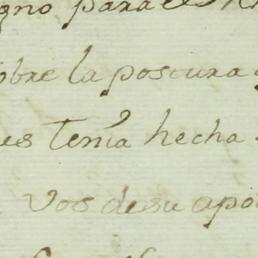 gno para el
obre la postura
es tenia hecha
vos de su apo